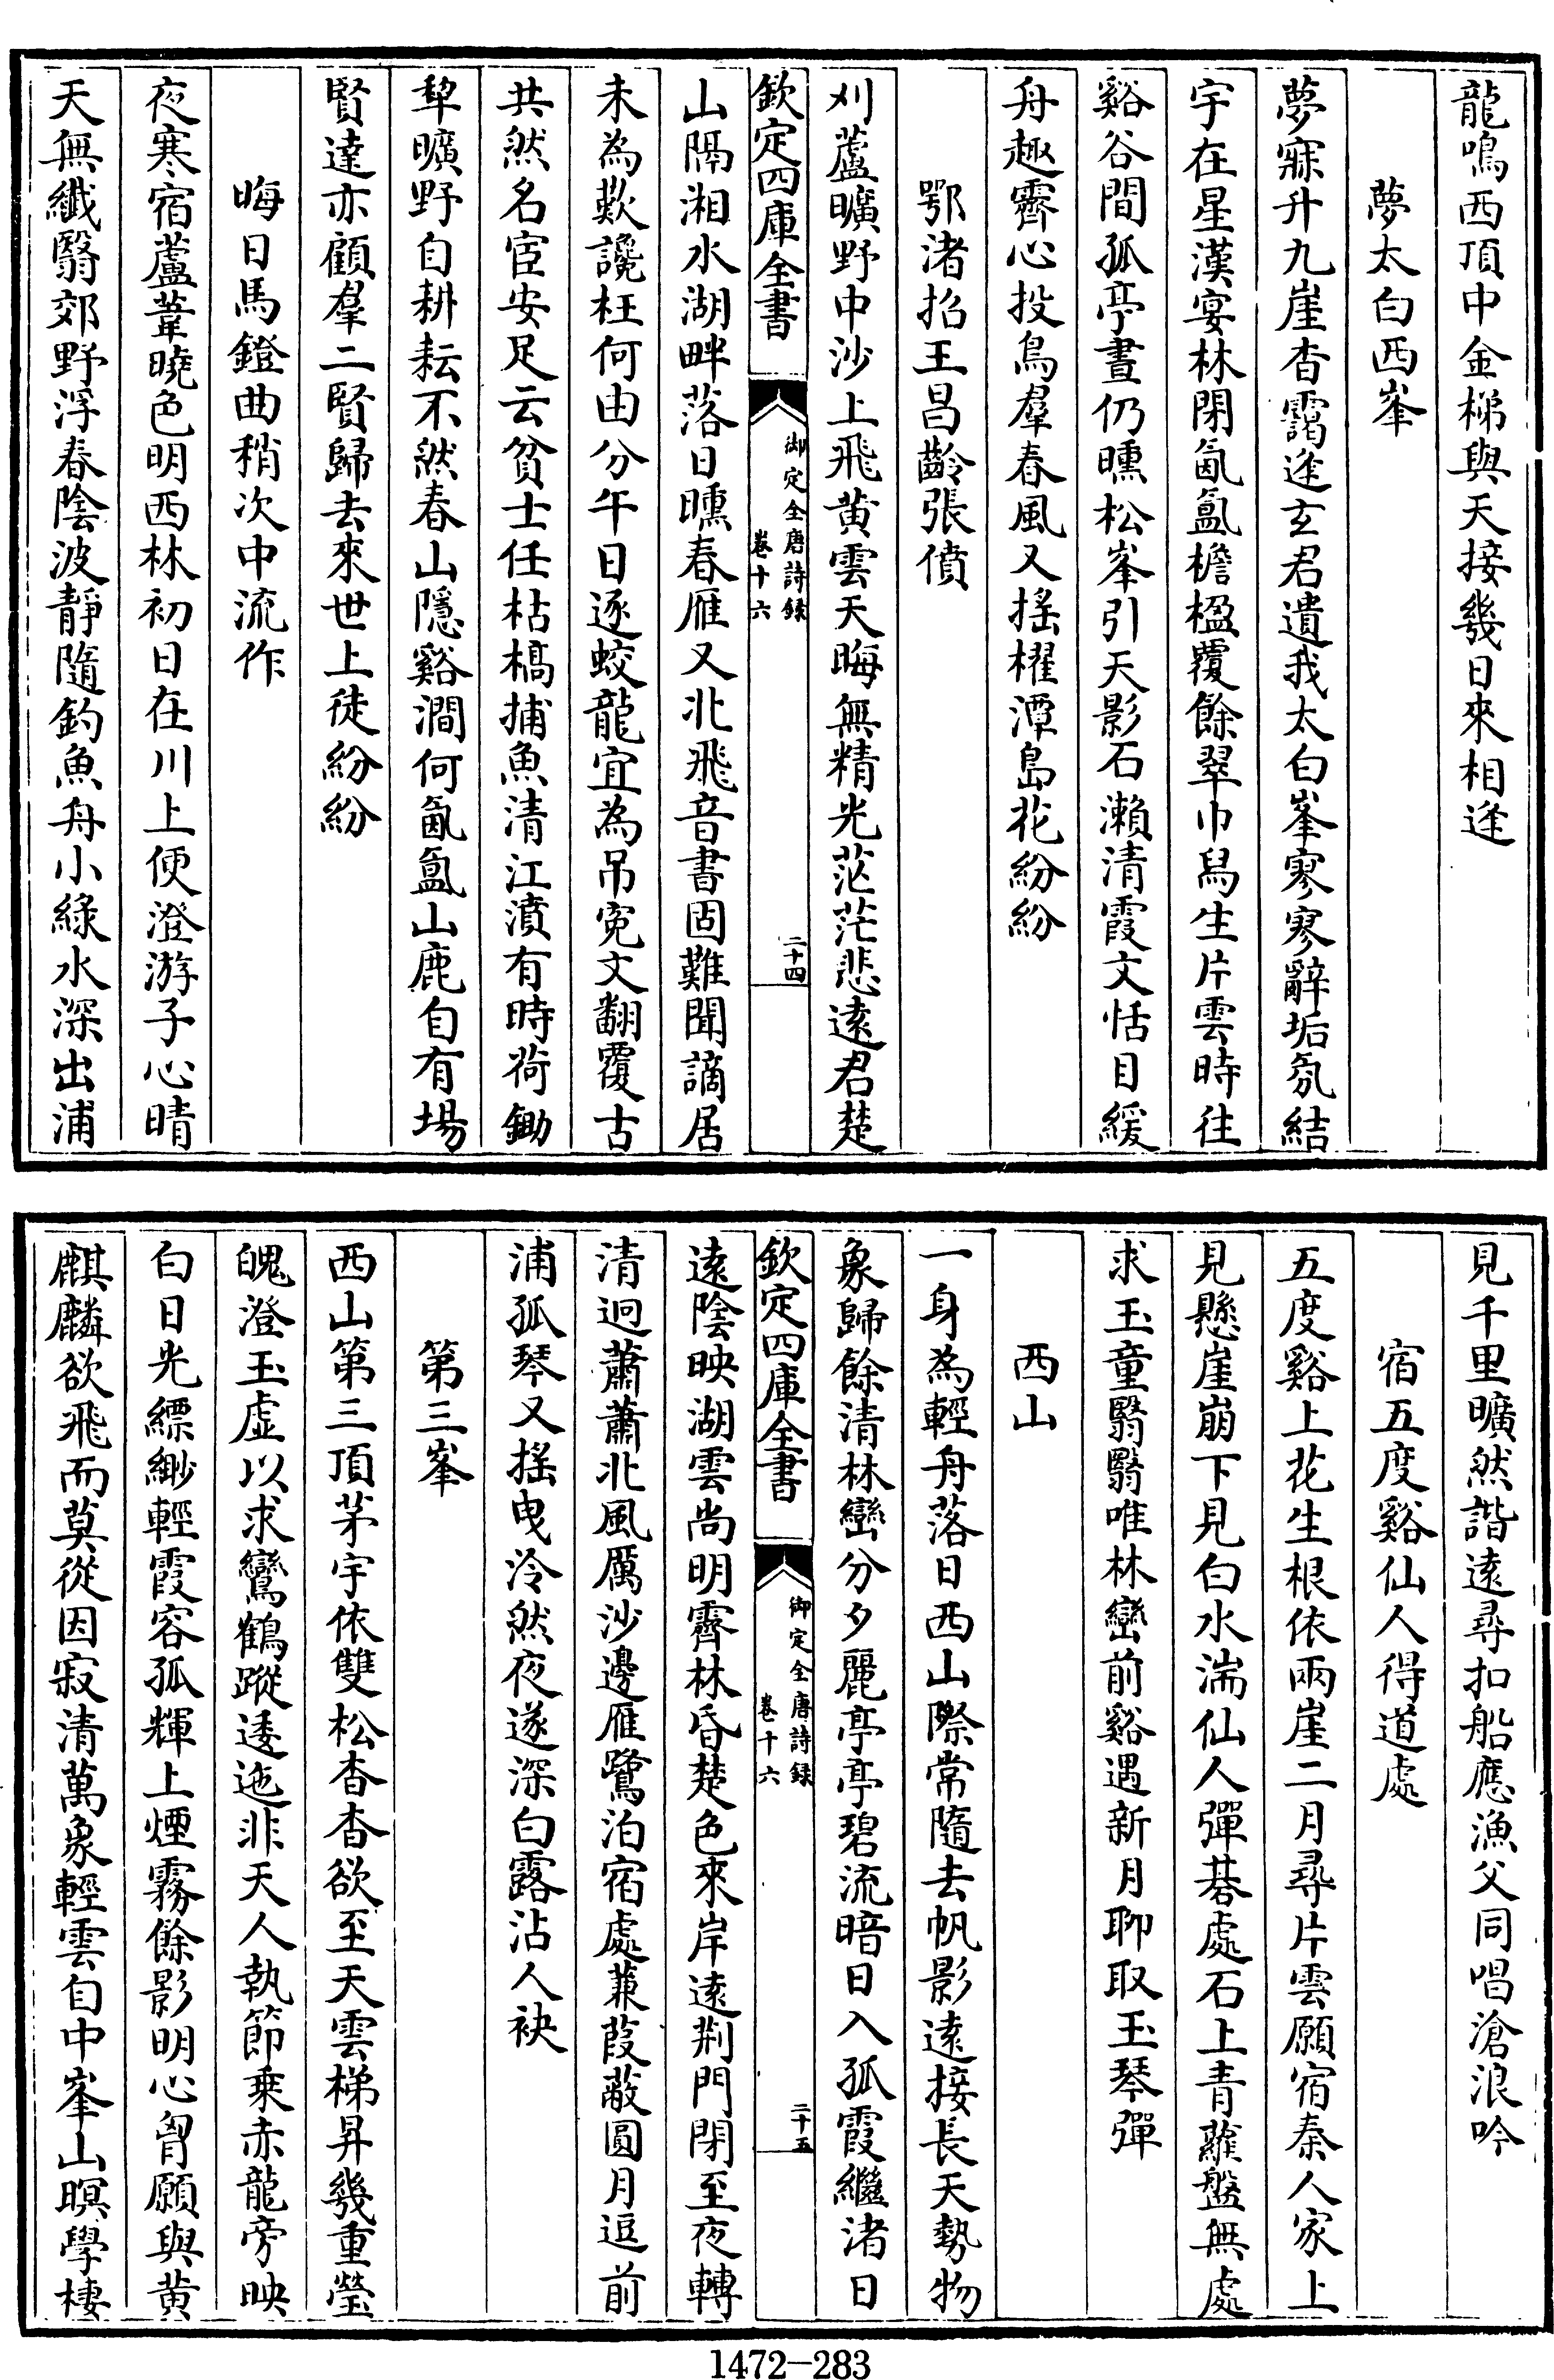 龍鳴西頂中金梯與天接幾日來相逢
夢太白西峯
夢寐升九崖杳靄逢玄君遺我太白峯寥寥辭垢氛結
宇在星漢宴林閉氤氲檐楹覆餘翠巾舄生片雲時往
谿谷間孤亭晝仍曛松峯引天影石瀨清霞文恬目緩
舟趣霽心投鳥羣春風又搖櫂潭島花紛紛
鄂渚招王昌齡張僨
刈蘆曠野中沙上飛黄雲天晦無精光茫茫悲遠君楚
欽定四庫全書
御定全唐詩録
卷十六
二十四
山隔湘水湖畔落日曛春雁又北飛音書固難聞謫居
未為歎讒枉何由分午日逐蛟龍宜為吊寃文翻覆古
共然名宦安足云貧士任枯槁捕魚清江濆有時荷鋤
犂曠野自耕耘不然春山隱谿澗何氤氲山鹿自有場
賢達亦顧羣二賢歸去來世上徒紛紛
晦日馬鐙曲稍次中流作
夜寒宿蘆葦曉色明西林初日在川上便澄游子心晴
天無纎翳郊野浮春陰波靜隨釣魚舟小綠水深出浦
見千里曠然諧遠尋扣船應漁父同唱滄浪吟
宿五度谿仙人得道處
五度谿上花生根依兩崖二月尋片雲願宿秦人家上
見懸崖崩下見白水湍仙人彈碁處石上青蘿盤無處
求玉童翳翳唯林巒前谿遇新月聊取玉琴彈
西山
一身為輕舟落日西山際常隨去帆影遠接長天勢物
象歸餘清林巒分夕麗亭亭碧流暗日入孤霞繼渚日
欽定四庫全書
御定全唐詩録
卷十六
二十五
遠陰映湖雲尚明霽林昏楚色來岸遠荆門閉至夜轉
清迥蕭蕭北風厲沙邊雁鷺泊宿處蒹葭蔽圓月逗前
浦孤琴又搖曳泠然夜遂深白露沾人袂
第三峯
西山第三頂茅宇依雙松杳杳欲至天雲梯昇幾重瑩
魄澄玉虚以求鸞鶴蹤逶迤非天人執節乗赤龍旁映
白日光縹緲輕霞容孤輝上煙霧餘影明心胷願與黄
麒麟欲飛而莫從因寂清萬象輕雲自中峯山暝學棲
1472—283